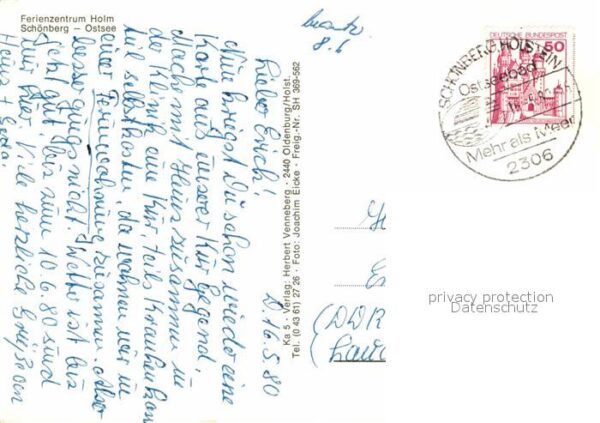 Ferienzentrum Holm
Schönberg – Ostsee
8.6
D. 16.5.80
Lieber Erich!
Nun kriegst Du schon wieder eine
Karte aus unserer Kur Gegend.
Mache mit Heinz zusammen in
der Klinik eine Kur, teils Krankenkasse
teil selbstkosten, da wohnen wir in
einer Ferienwohnung zusammen. Aber
besser gings nicht. Wetter ist bis
jetzt gut. Bis zum 10.6.80 sind
wir hier. Viele herzliche Grüße von
Heinz + Gerda.
Ka 5 · Verlag: Herbert Venneberg · 2440 Oldenburg/Holst.
Tel. (0 43 61) 27 26 · Foto: Joachim Eicke · Freig.-Nr. SH 369-562
DEUTSCHE BUNDESPOST
50
SCHÖNBERG, HOLSTEIN
Ostseebad
Mehr als Meer
2306
(DDR
privacy protection
Datenschutz